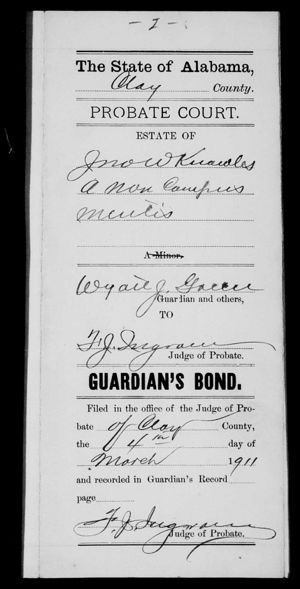 - 2 -
The State of Alabama,
Clay County.
PROBATE COURT.
ESTATE OF
Jno W Knowles
A Non Compus
Mentis
A Minor.
Wyatt J. Green
Guardian and others,
TO
F. J. Ingram
Judge of Probate.
GUARDIAN'S BOND.
Filed in the office of the Judge of Pro-
bate of Clay County,
the 4th day of
March 1911
and recorded in Guardian's Record
page
F. J. Ingram
Judge of Probate.